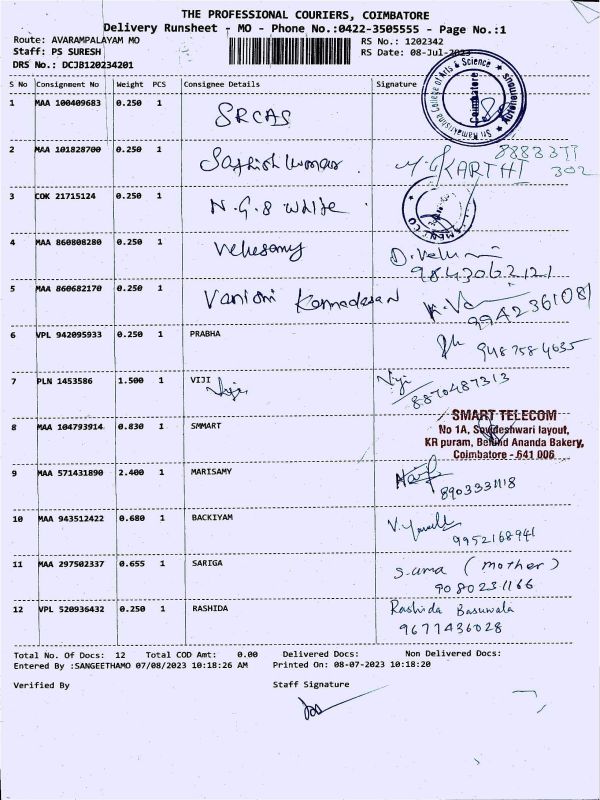 THE PROFESSIONAL COURIERS, COIMBATORE
Delivery Runsheet - MO - Phone No.:0422-3505555 - Page No.:1
Route: AVARAMPALAYAM MO
RS No.: 1202342
Staff: PS SURESH
RS Date: 08-Jul-2023
DRS No.: DCJB120234201
S No Consignment No Weight PCS Consignee Details Signature
Sri Ramakrishna College of Arts & Science
Coimbatore
Autonomous
1 MAA 100409683 0.250 1 SRCAS
2 MAA 101828700 0.250 1 Sathish Kumar M. KARTHI 8883377
302
3 COK 21715124 0.250 1 N.G.8 White
4 MAA 860808280 0.250 1 Velusamy
9843062121
5 MAA 860682170 0.250 1 Vanishri
9942361081
6 VPL 942095933 0.250 1 PRABHA
9487584635
7 PLN 1453586 1.500 1 VIJI Viji
8870487313
8 MAA 104793914 0.830 1 SMMART
SMART TELECOM
No 1A, layout,
KR puram, Behind Ananda Bakery,
Coimbatore - 641 006
9 MAA 571431890 2.400 1 MARISAMY
8903331118
10 MAA 943512422 0.680 1 BACKIYAM
9952168941
11 MAA 297502337 0.655 1 SARIGA S. uma (mother)
9080231166
12 VPL 520936432 0.250 1 RASHIDA Rashida Basuwala
9677436028
Total No. Of Docs: 12 Total COD Amt: 0.00 Delivered Docs: Non Delivered Docs:
Entered By :SANGEETHAMO 07/08/2023 10:18:26 AM Printed On: 08-07-2023 10:18:20
Verified By Staff Signature